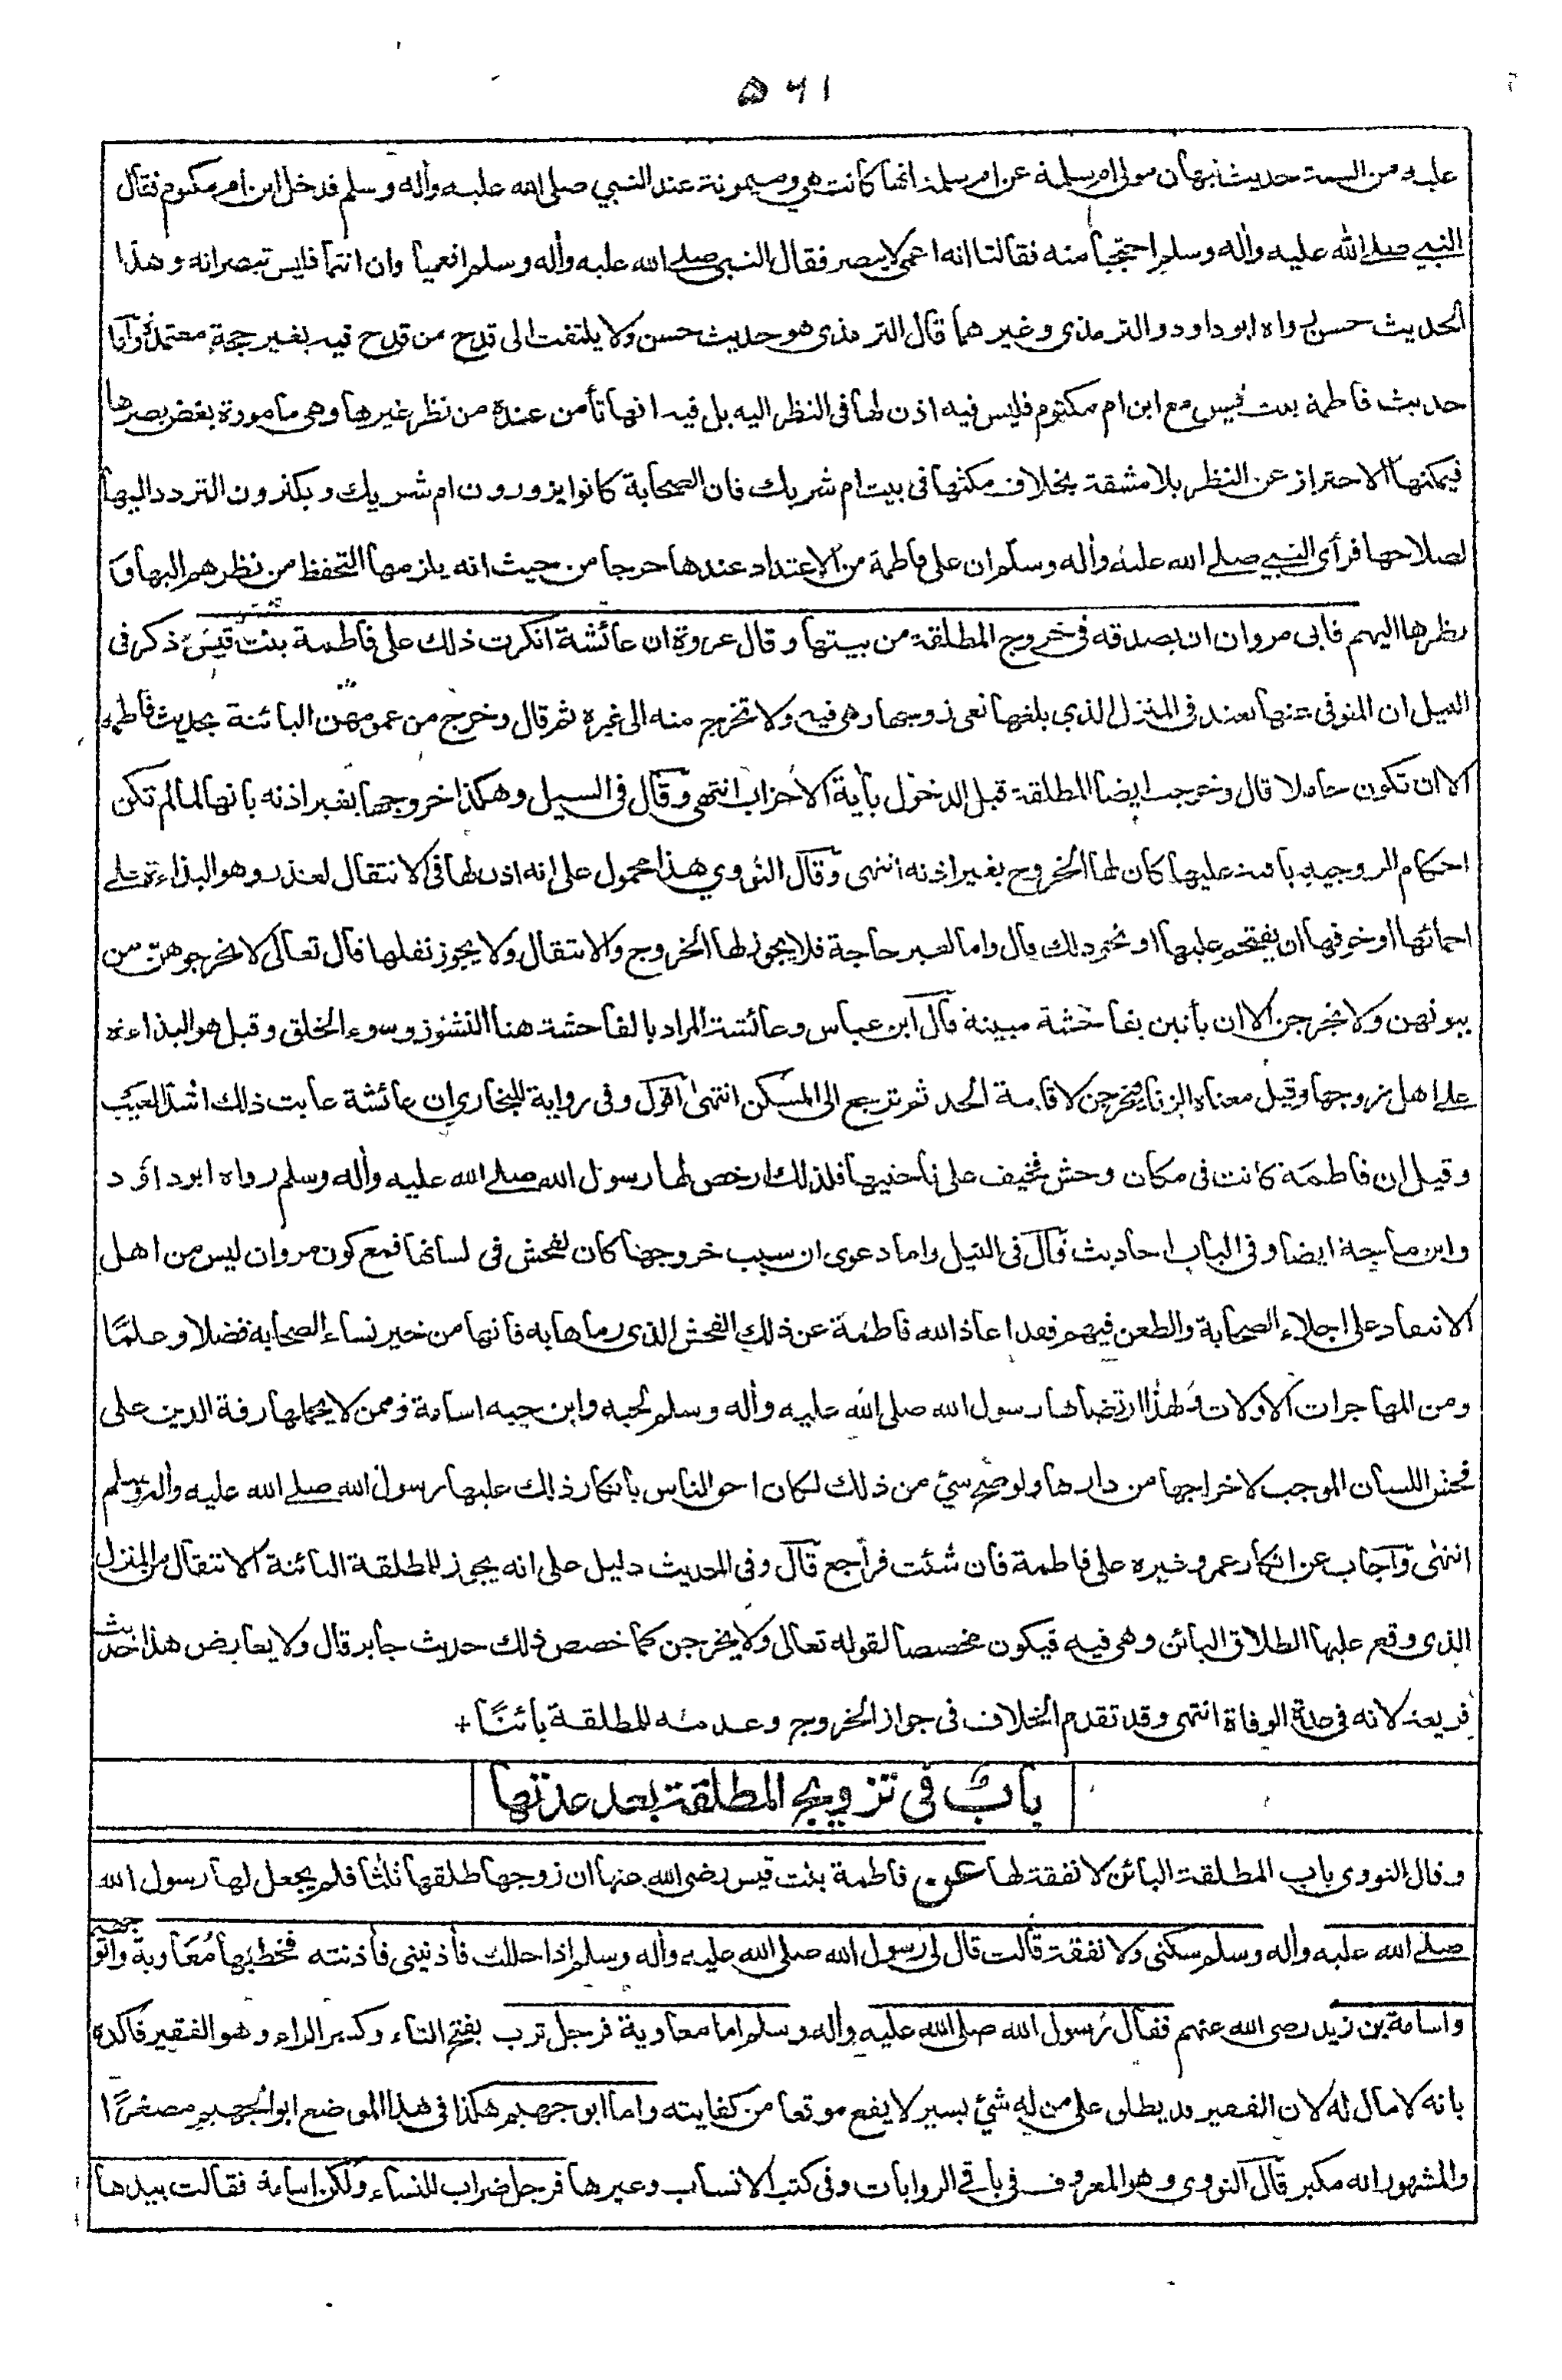 ۵۶۱
عليه من السنة حديث نبهان مولى ام سلمة عن ام سلمة انها كانت هي وميمونة عند النبي صلى الله عليه وأله وسلم فدخل ابن ام مكتوم فقال
النبي صلے الله عليه وأله وسلم احتجبا منه فقالتا انه اعمى لا يبصر فقال النبي صلے الله عليه وأله وسلم افعميا وان انتما فليس تبصرانه وهذا
الحديث حسن رواه ابو داود والترمذي وغيرهما قال الترمذي هو حديث حسن ولا يلتفت الى قدح من قدح فيه بغير حجة معتمدة وآما
حديث فاطمة بنت قيس مع ابن ام مكتوم فليس فيه اذن لها فى النظر اليه بل فيه انها تأمن عنده من نظر غيرها وهي مامورة بغض بصرها
فيمكنها الاحتراز عن النظر بلا مشقة بخلاف مكثها فى بيت ام شريك فان الصحابة كانوا يزورون ام شريك ويكثرون التردد اليها
لصلاحها فرأى النبي صلے الله عليه وأله وسلم ان على فاطمة من الاعتداد عندها حرجا من حيث انه يلزمها التحفظ من نظرهم اليها و
نظرها اليهم فابى مروان ان يصدقه فى خروج المطلقة من بيتها وقال عروة ان عائشة انكرت ذلك على فاطمة بنت قيس ذكر فى
النيل ان المتوفى عنها تعتد فى المنزل الذي بلغها نعى زوجها وهى فيه ولا تخرج منه الى غيره ثم قال وخرج من عمومهن البائنة بحديث فاطمة
الا ان تكون حاملا قال وخرجت ايضا المطلقة قبل الدخول بأية الاحزاب انتهى وقال فى السيل وهكذا خروجها بغير اذنه بانها لما لم تكن
احكام الزوجية باقية عليها كان لها الخروج بغير اذنه انتهى وقال النووي هذا محمول على انه اذن لها فى الانتقال لعذر وهو البذاءة على
احمائها او خوفها ان يقتحم عليها او نحو ذلك قال واما لغير حاجة فلا يجوز لها الخروج والانتقال ولا يجوز نقلها قال تعالى لا تخرجوهن من
بيوتهن ولا يخرجن الا ان يأتين بفاحشة مبينة قال ابن عباس وعائشة المراد بالفاحشة هنا النشوز وسوء الخلق وقيل هو البذاءة
على اهل زوجها وقيل معناه الزنا يخرجن لاقامة الحد ثم ترجع الى المسكن انتهى اقول وفى رواية للبخاري ان عائشة عابت ذلك اشد العيب
وقيل ان فاطمة كانت فى مكان وحش مخيف على ناحيتها فلذلك ارخص لها رسول الله صلے الله عليه وأله وسلم رواه ابو داؤد
وابن ماجة ايضا وفى الباب احاديث قال فى النيل واما دعوى ان سبب خروجها كان لفحش فى لسانها فمع كون مروان ليس من اهل
الانتقاد على اجلاء الصحابة والطعن فيهم فقد اعاذ الله فاطمة عن ذلك الفحش الذى رماها به فانها من خير نساء الصحابة فضلا وعلمًا
ومن المهاجرات الاولات ولهذا ارتضاها رسول الله صلى الله عليه وأله وسلم لحبه وابن حبه اسامة وممن لا يحملها رقة الدين على
فحش اللسان الموجب لاخراجها من دارها ولو صح شئ من ذلك لكان احق الناس بانكار ذلك عليها رسول الله صلے الله عليه وأله وسلم
انتهى وآجاب عن انكار عمر وغيره على فاطمة فان شئت فراجع قال وفى الحديث دليل على انه يجوز للمطلقة البائنة الانتقال من المنزل
الذى وقع عليها الطلاق البائن وهى فيه فيكون مخصصا لقوله تعالى ولا يخرجن كما خصص ذلك حديث جابر قال ولا يعارض هذا حديث
فريعة لانه فى عدة الوفاة انتهى وقد تقدم الخلاف فى جواز الخروج وعدمه للمطلقة بائنًا +
باب فى تزويج المطلقة بعد عدتها
وقال النووى باب المطلقة البائن لا نفقة لها عن فاطمة بنت قيس رضى الله عنها ان زوجها طلقها ثلثا فلم يجعل لها رسول الله
صلے الله عليه وأله وسلم سكنى ولا نفقة قالت قال لى رسول الله صلى الله عليه وأله وسلم اذا حللت فأذنينى فأذنته فخطبها مُعَاوية وابو جهم
واسامة بن زيد رضى الله عنهم فقال رسول الله صلى الله عليه وأله وسلم اما معاوية فرجل ترب بفتح التاء وكسر الراء وهو الفقير فاكده
بانه لا مال له لان الفقير قد يطلق على من له شئ يسير لا يقع موقعا من كفايته واما ابو جهم هكذا فى هذا الموضع ابو الجهيم مصغرًا
والمشهور انه مكبر قال النووى وهو المعروف فى باقى الروايات وفى كتب الانساب وغيرها فرجل ضراب للنساء ولكن اسامة فقالت بيدها